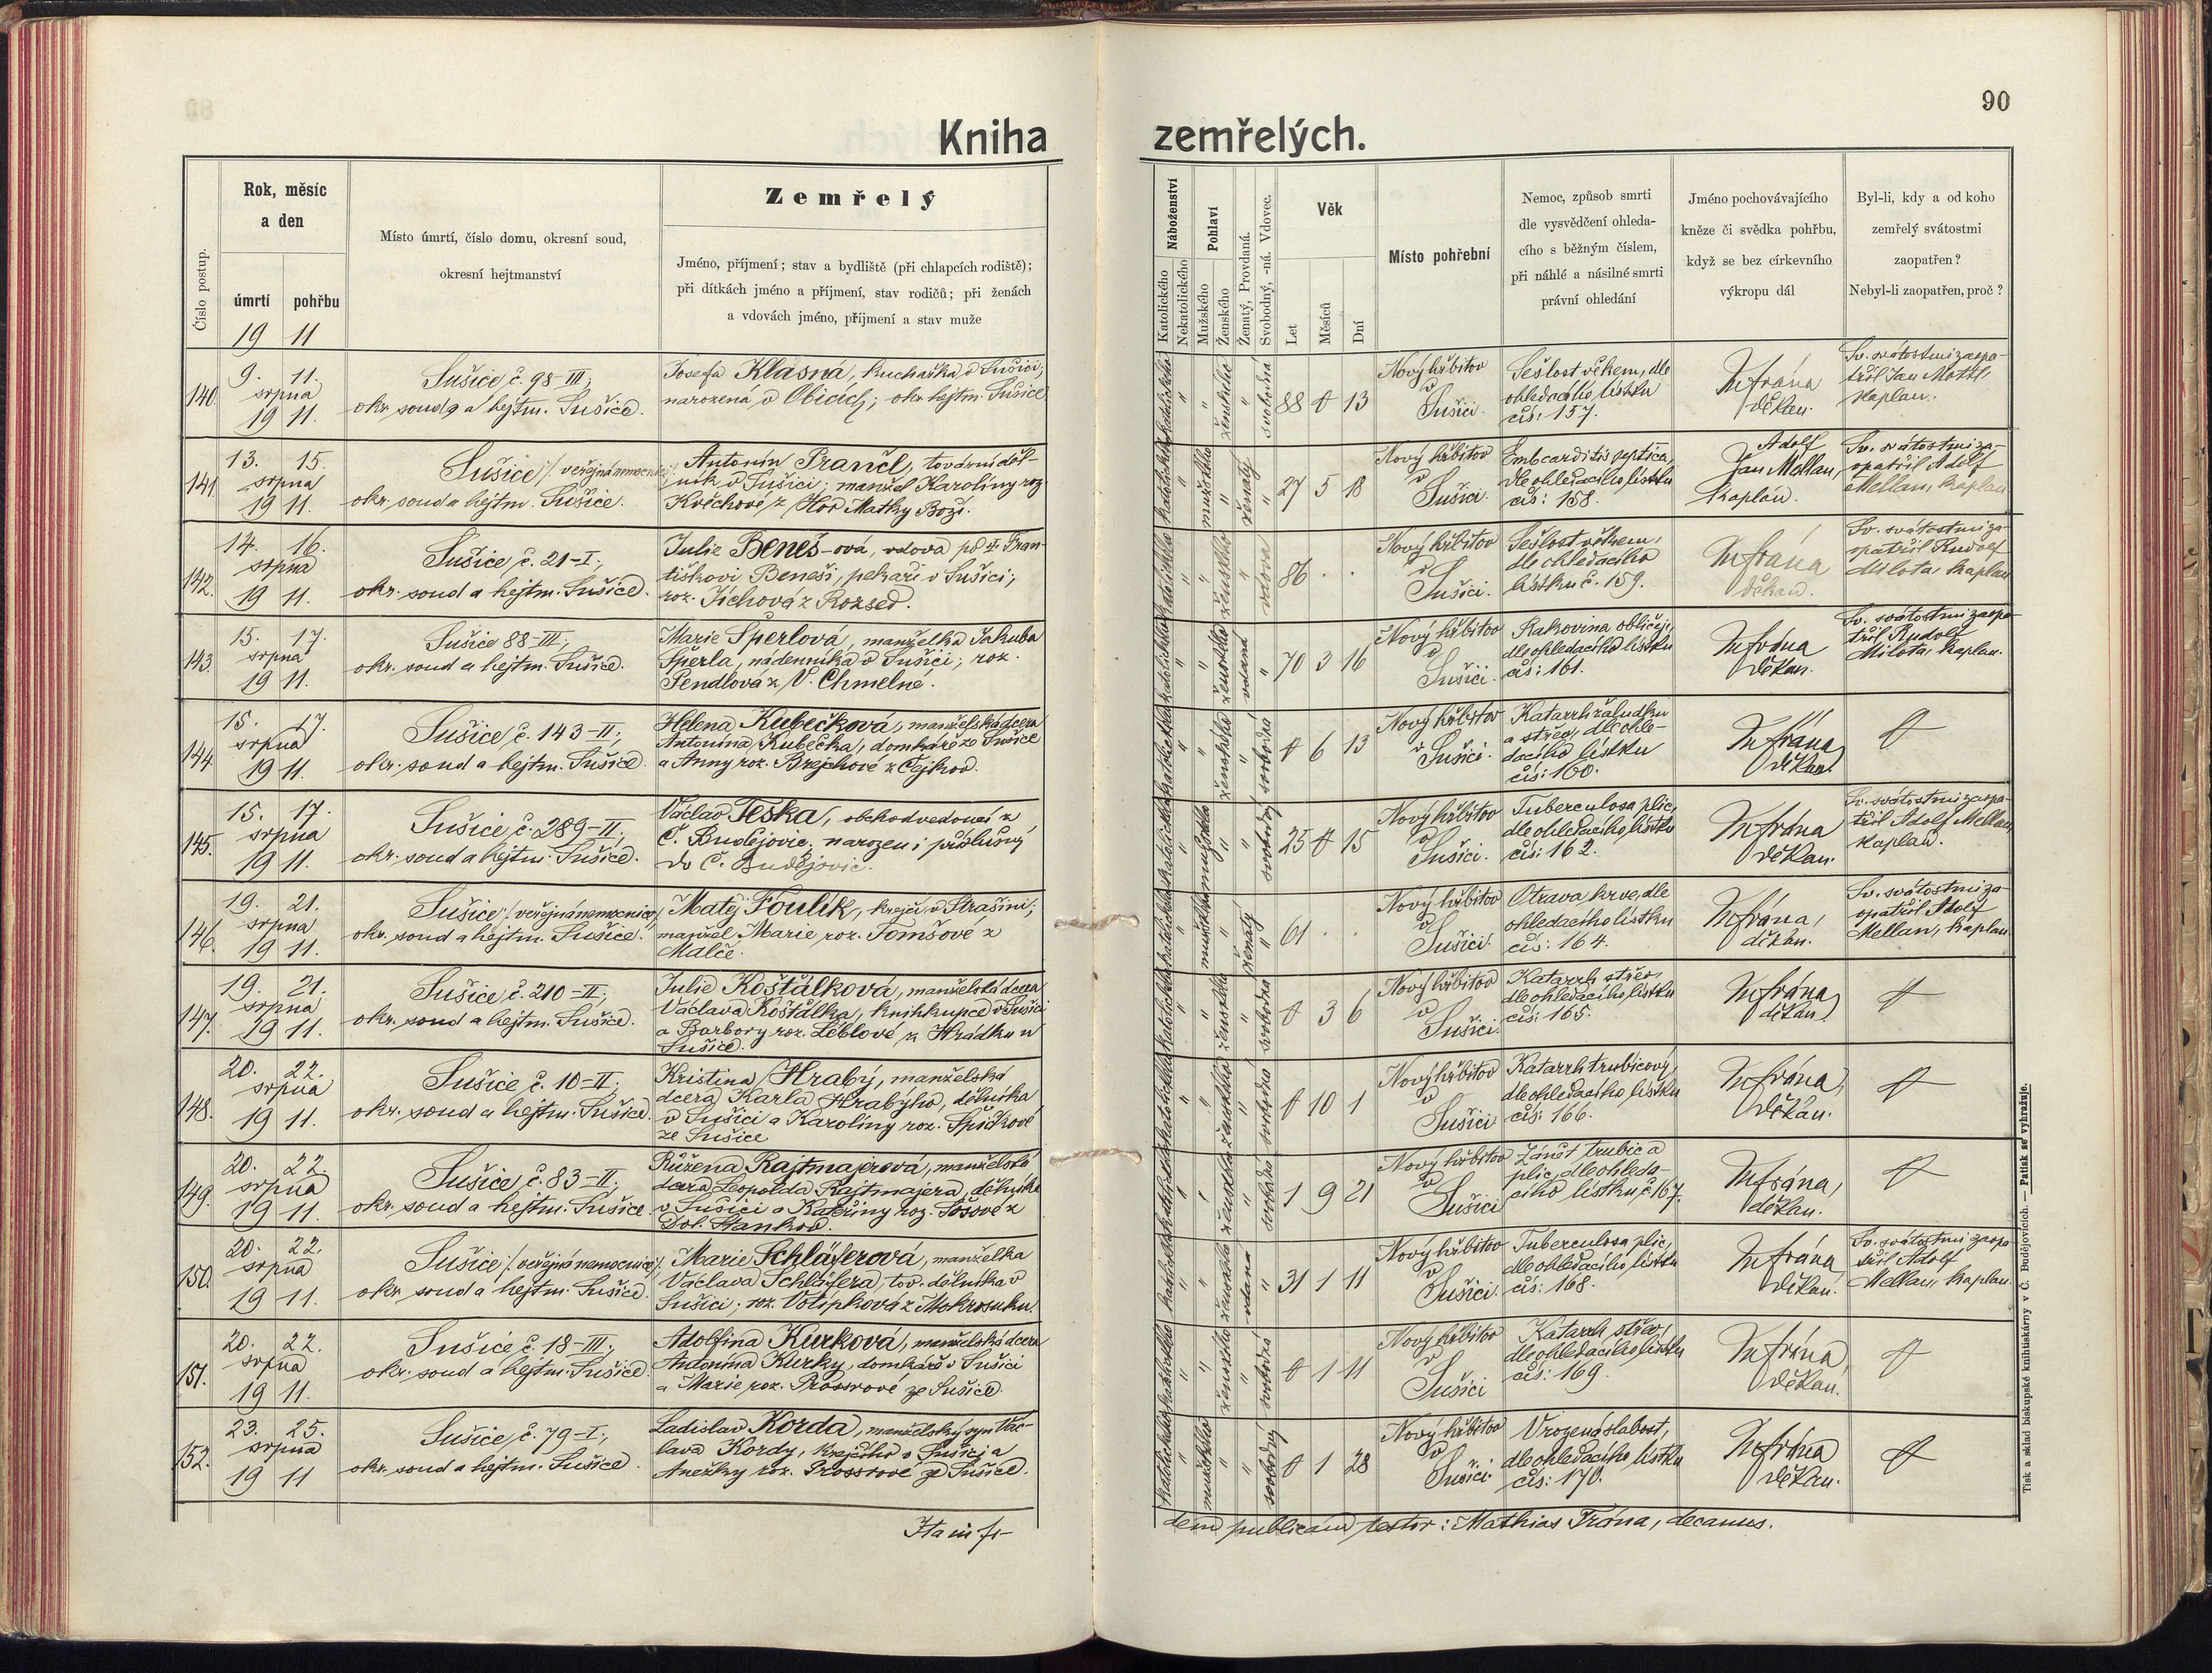 90
Kniha zemřelých.
Číslo postup.
Rok, měsíc
a den
úmrtí
pohřbu
19 11
Místo úmrtí, číslo domu, okresní soud,
okresní hejtmanství
Zemřelý
Jméno, příjmení; stav a bydliště (při chlapcích rodiště);
při dítkách jméno a příjmení, stav rodičů; při ženách
a vdovách jméno, příjmení a stav muže
Náboženství
Katolického
Nekatolického
Pohlaví
Mužského
Ženského
Ženatý, Provdaná.
Svobodný, -ná. Vdovec.
Věk
Let
Měsíců
Dní
Místo pohřební
Nemoc, způsob smrti
dle vysvědčení ohleda-
cího s běžným číslem,
při náhlé a násilné smrti
právní ohledání
Jméno pochovávajícího
kněze či svědka pohřbu,
když se bez církevního
výkropu dál
Byl-li, kdy a od koho
zemřelý svátostmi
zaopatřen?
Nebyl-li zaopatřen, proč?
140.
9. 11.
srpna
19 11.
Sušice, č. 98-III;
okr. soud a hejtm. Sušice.
Josefa Klasna, kuchařka v Sušici;
narozená v Obicích; okr. hejtm. Sušice
katolického
ženského
svobodná
88 0 13
Nový hřbitov
v
Sušici.
Sešlost věkem, dle
ohledacího lístku
čís: 157.
M Frána
děkan.
Sv. svátostmi zaopa-
třil Jan Mottl,
kaplan.
141.
13. 15.
srpna
19 11.
Sušice /: veřejná nemocnice :/
okr. soud a hejtm. Sušice.
Antonín Frančl, tovární děl-
ník v Sušici; manžel Karoliny roz.
Květchové z Hor Matky Boží.
katolického
mužského
ženatý
27 5 18
Nový hřbitov
v
Sušici.
septica,
dle ohledacího lístku
čís: 158.
Adolf
Jan Mellan,
kaplan.
Sv. svátostmi za-
opatřil Adolf
Mellan, kaplan
142.
14. 16.
srpna
19 11.
Sušice, č. 21-I;
okr. soud a hejtm. Sušice.
Julie Beneš-ová, vdova po Fran-
tiškovi Beneši, pekaři v Sušici,
roz. Jíchová z Rozsed.
katolického
ženského
vdova
86 . .
Nový hřbitov
v
Sušici.
Sešlost věkem,
dle ohledacího
lístku č. 159.
M Frána
děkan.
Sv. svátostmi za-
opatřil Rudolf
Milota, kaplan
143.
15. 17.
srpna
19 11.
Sušice 88-III;
okr. soud a hejtm. Sušice.
Marie Šperlová, manželka Jakuba
Šperla, nádenníka v Sušici; roz.
Pendlová z V. Chmelné.
katolického
ženského
vdaná
70 3 16
Nový hřbitov
v
Sušici.
Rakovina obličeje,
dle ohledacího lístku
čís: 161.
M Frána
děkan.
Sv. svátostmi zaopa-
třil Rudolf
Milota, kaplan.
144.
15. 17.
srpna
19 11.
Sušice, č. 143-II;
okr. soud a hejtm. Sušice.
Helena Kubečková, manželská dcera
Antonína Kubečka, domkáře ze Sušice
a Anny roz. Brejchové z Čejkov.
katolického
ženského
svobodná
0 6 13
Nový hřbitov
v
Sušici.
Katarrh žaludku
a střev, dle ohle-
dacího lístku
čís: 160.
M Frána,
děkan.
0
145.
15. 17.
srpna
19 11.
Sušice, č. 289-II;
okr. soud a hejtm. Sušice.
Václav Peska, obchodvedoucí z
Č. Budějovic, narozen i příslušný
do Č. Budějovic.
katolického
mužského
svobodný
25 0 15
Nový hřbitov
v
Sušici.
Tuberculosa plic,
dle ohledacího lístku
čís: 162.
M Frána
děkan.
Sv. svátostmi zaopa-
třil Adolf Mellan,
kaplan.
146.
19. 21.
srpna
19 11.
Sušice /: veřejná nemocnice :/
okr. soud a hejtm. Sušice.
Matěj Foulík, krejčí v Strašíni;
manžel Marie roz. Tomšové z
Malče.
katolického
mužského
ženatý
61 . .
Nový hřbitov
v
Sušici.
Otrava krve, dle
ohledacího lístku
čís: 164.
M Frána,
děkan.
Sv. svátostmi za-
opatřil Adolf
Mellan, kaplan
147.
19. 21.
srpna
19 11.
Sušice, č. 210-II;
okr. soud a hejtm. Sušice.
Julie Košťálková, manželská dcera
Václava Košťálka, knihkupce v Sušici
a Barbory roz. Léblové z Hrádku u
Sušice.
katolického
ženského
svobodná
0 3 6
Nový hřbitov
v
Sušici.
Katarrh střev,
dle ohledacího lístku
čís: 165.
M Frána,
děkan.
0
148.
20. 22.
srpna
19 11.
Sušice č. 10-II;
okr. soud a hejtm. Sušice.
Kristina Hrabý, manželská
dcera Karla Hrabýho, dělníka
v Sušici a Karoliny roz. Špičkové
ze Sušice
katolického
ženského
svobodná
0 10 1
Nový hřbitov
v
Sušici.
Katarrh trubicový,
dle ohledacího lístku
čís: 166.
M Frána,
děkan.
0
149.
20. 22.
srpna
19 11.
Sušice, č. 83-II;
okr. soud a hejtm. Sušice
Růžena Rajtmajerová, manželská
dcera Leopolda Rajtmajera, dělníka
v Sušici a Kateřiny roz. Šosové z
Dol. Staňkov.
katolického
ženského
svobodná
1 9 21
Nový hřbitov
v
Sušici
Zánět trubic a
plic, dle ohleda-
cího lístku č. 167.
M Frána,
děkan.
0
150.
20. 22.
srpna
19 11.
Sušice /: veřejná nemocnice :/.
okr. soud a hejtm. Sušice.
Marie Schläferová, manželka
Václava Schläfera, tov. dělníka v
Sušici; roz. Votípková z Mokrosuku.
katolického
ženského
vdaná
31 1 11
Nový hřbitov
v
Sušici.
Tuberculosa plic,
dle ohledacího lístku
čís: 168.
M Frána
děkan.
Sv. svátostmi zaopa-
třil Adolf
Mellan, kaplan.
151.
20. 22.
srpna
19 11.
Sušice č. 18-III;
okr. soud a hejtm. Sušice.
Adolfina Kurková, manželská dcera
Antonína Kurky, domkáře v Sušici
a Marie roz. Prossrové ze Sušice.
katolického
ženského
svobodná
0 1 11
Nový hřbitov
v
Sušici
Katarrh střev,
dle ohledacího lístku
čís: 169.
M Frána,
děkan.
0
152.
23. 25.
srpna
19 11
Sušice, č. 79-I;
okr. soud a hejtm. Sušice.
Ladislav Korda, manželský syn Vác-
lava Kordy, krejčího v Sušici a
Anežky roz. Prossrové ze Sušice.
katolického
mužského
svobodný
0 1 28
Nový hřbitov
v
Sušici.
Vrozená slabost,
dle ohledacího lístku
čís: 170.
M Frána
děkan.
0
Ita in fi-
dem publicam testor: Mathias Frána, decanus.
Tisk a sklad biskupské knihtiskárny v Č. Budějovicích. — Patisk se vyhražuje.